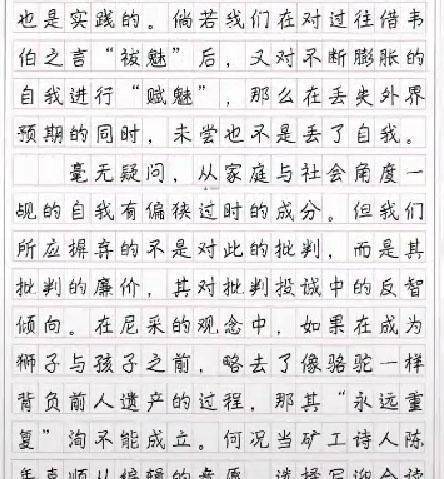 也是实践的。倘若我们在对过往借韦
伯之言“祓魅”后，又对不断膨胀的
自我进行“赋魅”，那么在丢失外界
预期的同时，未尝也不是丢了自我。
毫无疑问，从家庭与社会角度一
觇的自我有偏狭过时的成分。但我们
所应摒弃的不是对此的批判，而是其
批判的廉价，其对批判投诚中的反智
倾向。在尼采的观念中，如果在成为
狮子与孩子之前，略去了像骆驼一样
背负前人遗产的过程，那其“永远重
复”洵不能成立。何况当矿工诗人陈
年喜顺从编辑的意愿，选择写迎合读